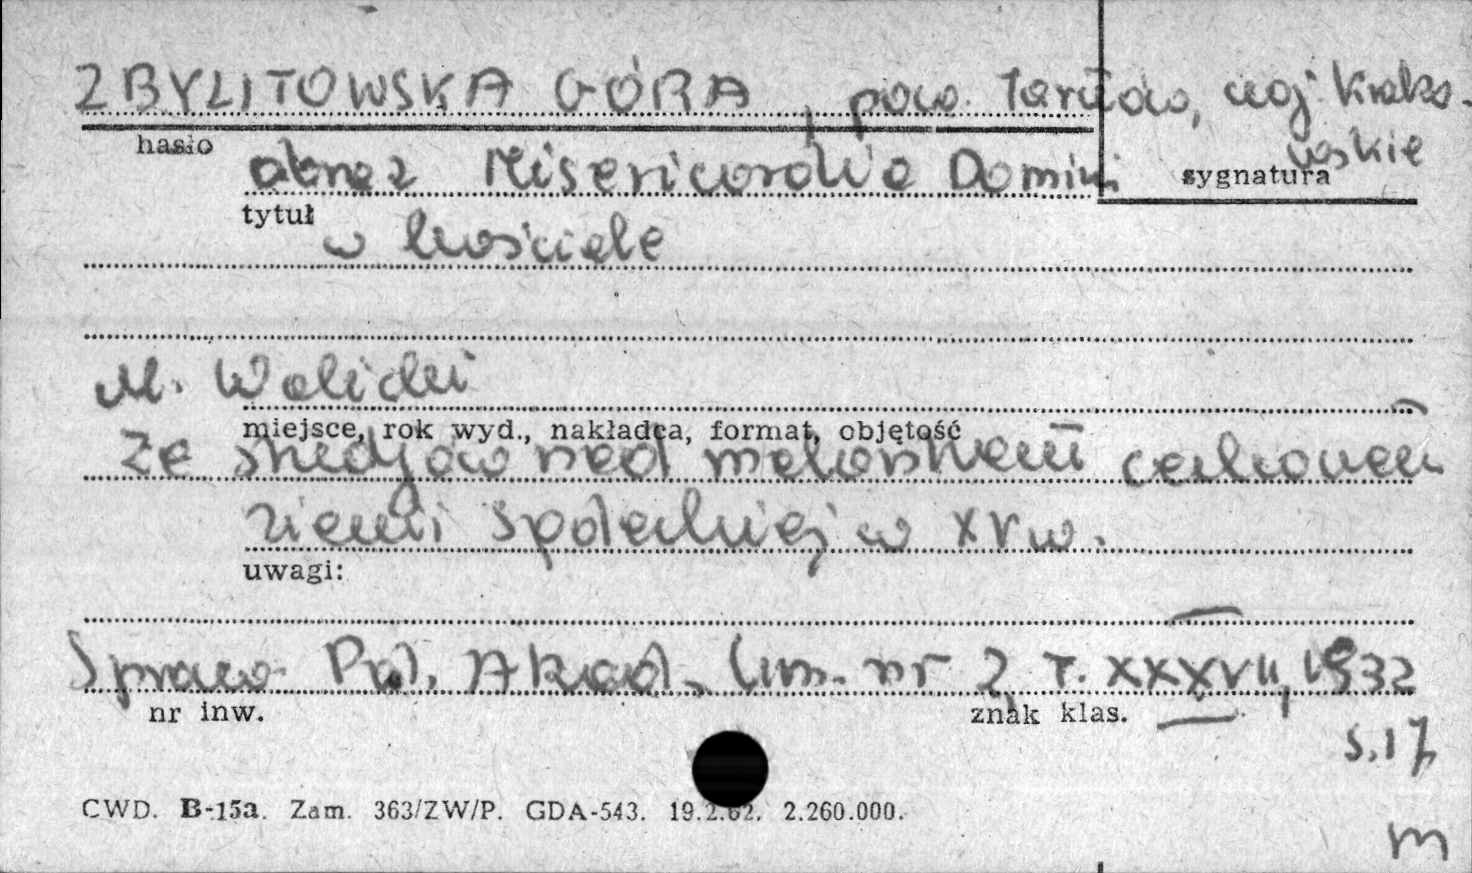 ZBYLITOWSKA GÓRA, pow. Tarnów, woj. krako-
wskie
hasło
sygnatura
obraz Misericordia Domini
tytuł
w kościele
M. Walicki
miejsce, rok wyd., nakładca, format, objętość
Ze studjów nad malarstwem cechowem
ziemi sądeckiej w XV w.
uwagi:
Spraw. Pol. Akad. Um. nr 2, T. XXXVII, 1932
nr inw. znak klas.
s. 17
CWD. B-15a. Zam. 363/ZW/P. GDA-543. 19.2.62. 2.260.000.
m